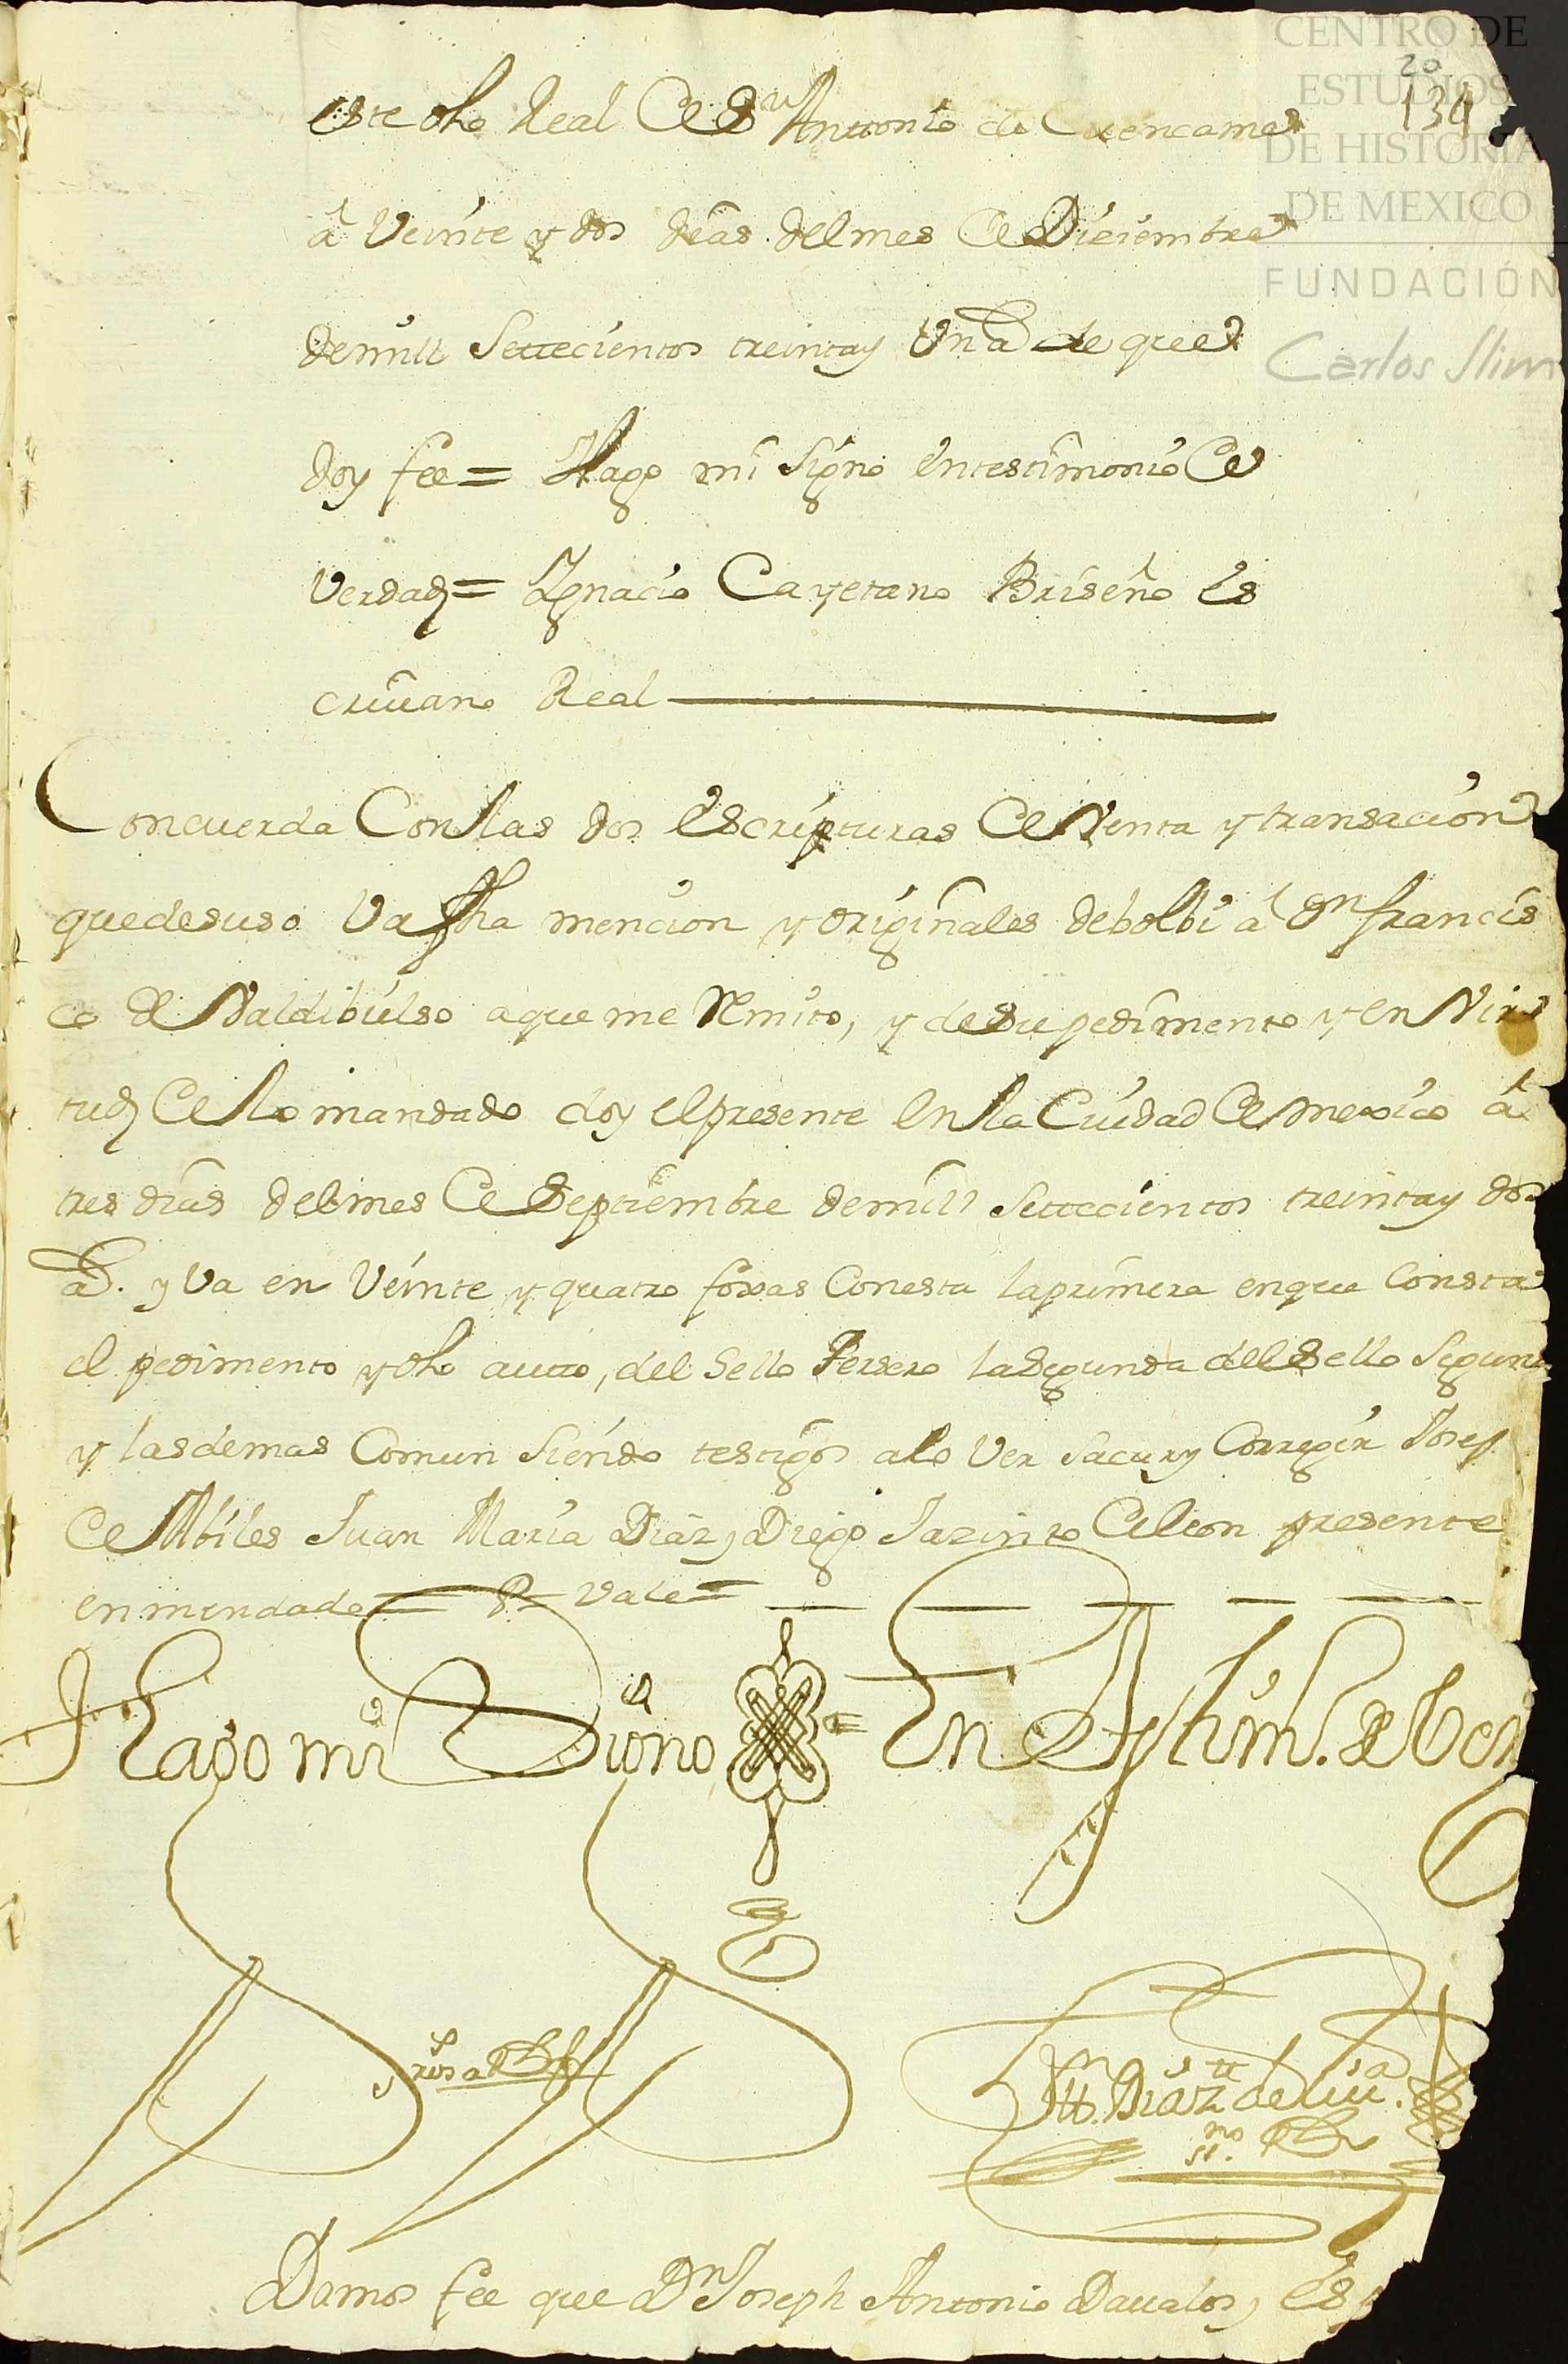 CENTRO DE
ESTUDIOS
DE HISTORIA
DE MEXICO
FUNDACIÓN
Carlos Slim
20
134
este dho Real de Sn Anttonio de Cuencame
â Veinte y dos dias del mes de Diciembre
de mill Settecientos treinta y Un a.s de que
doy fee = Hago mi Signo en testimonio de
Verdad = Ygnacio Cayetano Briseño Es
criuano Real
Concuerda Con las dos Escripturas de Venta y transacion
que de suso Va fha mencion y originales debolbi a Dn francis
co de Valdibielso a que me Remito, y de su pedimento y en Vir
tud de lo mandado doy el presente en la Ciudad de mexico â
tres dias del mes de Septiembre de mill Settecientos treinta y dos
a.s y Va en Veinte y quatro foxas Con esta la primera en que Consta
el pedimento y dho autto, del Sello Tersero la Segunda del Sello Segun
y las demas Comun Siendo testigos a lo Ver Sacar y Corregir Josep
de Abiles Juan Maria Diaz, y Diego Jazinto de leon presente
enmendado = R = Vale =
Hago mi Signo = En Testim.o de Ver
Diaz de
Damos fee que Dn Joseph Antonio Daualos, Es